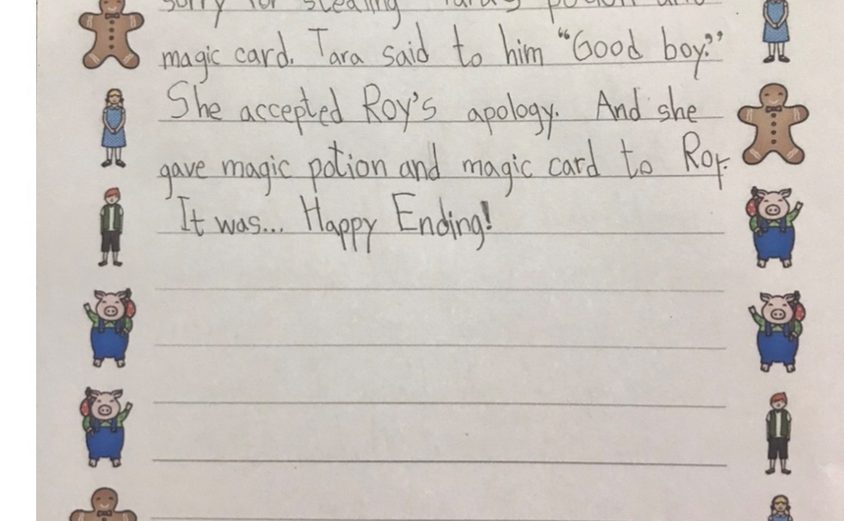 sorry for stealing Tara's potion and
magic card. Tara said to him "Good boy."
She accepted Roy's apology. And she
gave magic potion and magic card to Roy.
It was... Happy Ending!